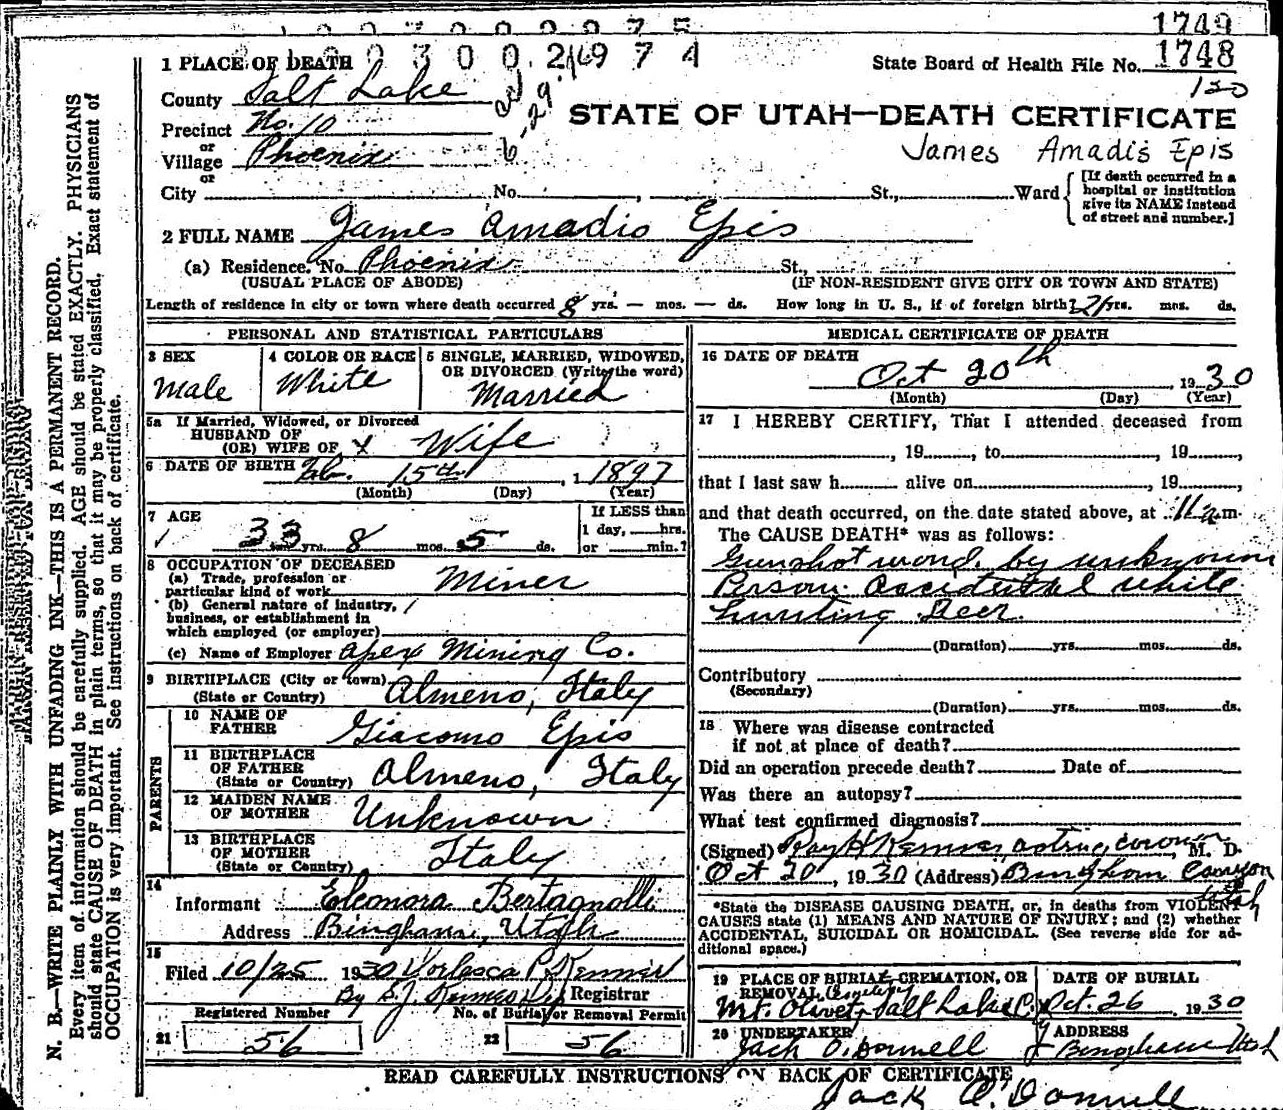 1749
2 3 0 0 2 169 7 4
1748
1 PLACE OF DEATH
State Board of Health File No.
130
County Salt Lake
STATE OF UTAH—DEATH CERTIFICATE
Precinct No. 10
or
Village Phoenix
James Amadis Epis
or
City No. , St., Ward
[If death occurred in a
hospital or institution
give its NAME instead
of street and number.]
2 FULL NAME James Amadio Epis
(a) Residence. No. Phoenix St.,
(USUAL PLACE OF ABODE) (IF NON-RESIDENT GIVE CITY OR TOWN AND STATE)
Length of residence in city or town where death occurred 8 yrs. — mos. — ds. How long in U. S., if of foreign birth? 21 yrs. mos. ds.
PERSONAL AND STATISTICAL PARTICULARS
3 SEX
Male
4 COLOR OR RACE
White
5 SINGLE, MARRIED, WIDOWED,
OR DIVORCED (Write the word)
Married
5a If Married, Widowed, or Divorced
HUSBAND OF
(OR) WIFE OF x Wife
6 DATE OF BIRTH Feb. 15th, 1897
(Month) (Day) (Year)
7 AGE
33 yrs. 8 mos. 5 ds.
If LESS than
1 day, hrs.
or min.?
8 OCCUPATION OF DECEASED
(a) Trade, profession or
particular kind of work Miner
(b) General nature of industry,
business, or establishment in
which employed (or employer)
(c) Name of Employer Apex Mining Co.
9 BIRTHPLACE (City or town)
(State or Country) Almeno, Italy
PARENTS
10 NAME OF
FATHER Giacomo Epis
11 BIRTHPLACE
OF FATHER
(State or Country) Almeno, Italy
12 MAIDEN NAME
OF MOTHER Unknown
13 BIRTHPLACE
OF MOTHER
(State or Country) Italy
14
Informant Eleonora Bertagnolli
Address Bingham, Utah
15
Filed 10/25 1930
Registrar
Registered Number No. of Burial or Removal Permit
21 56 22 56
MEDICAL CERTIFICATE OF DEATH
16 DATE OF DEATH
Oct 20th, 1930
(Month) (Day) (Year)
17 I HEREBY CERTIFY, That I attended deceased from
, 19 , to , 19 ,
that I last saw h alive on , 19 ,
and that death occurred, on the date stated above, at 11 a m.
The CAUSE DEATH* was as follows:
Gunshot wond. by unknown
Person accidental while
hunting Deer.
(Duration) yrs. mos. ds.
Contributory
(Secondary)
(Duration) yrs. mos. ds.
18 Where was disease contracted
if not at place of death?
Did an operation precede death? Date of
Was there an autopsy?
What test confirmed diagnosis?
(Signed) Ray H Kenner, acting coroner, M. D.
Oct 20, 1930 (Address) Bingham Canyon
Utah
*State the DISEASE CAUSING DEATH, or, in deaths from VIOLENT
CAUSES state (1) MEANS AND NATURE OF INJURY; and (2) whether
ACCIDENTAL, SUICIDAL OR HOMICIDAL. (See reverse side for ad-
ditional space.)
19 PLACE OF BURIAL, CREMATION, OR
REMOVAL
Mt. Olivet, Salt Lake C.
DATE OF BURIAL
Oct. 26, 1930
20 UNDERTAKER
Jack O'Donnell
ADDRESS
Bingham Utah
READ CAREFULLY INSTRUCTIONS ON BACK OF CERTIFICATE
Jack O'Donnell
N. B.—WRITE PLAINLY WITH UNFADING INK—THIS IS A PERMANENT RECORD.
Every item of information should be carefully supplied. AGE should be stated EXACTLY. PHYSICIANS
should state CAUSE OF DEATH in plain terms, so that it may be properly classified. Exact statement of
OCCUPATION is very important. See instructions on back of certificate.